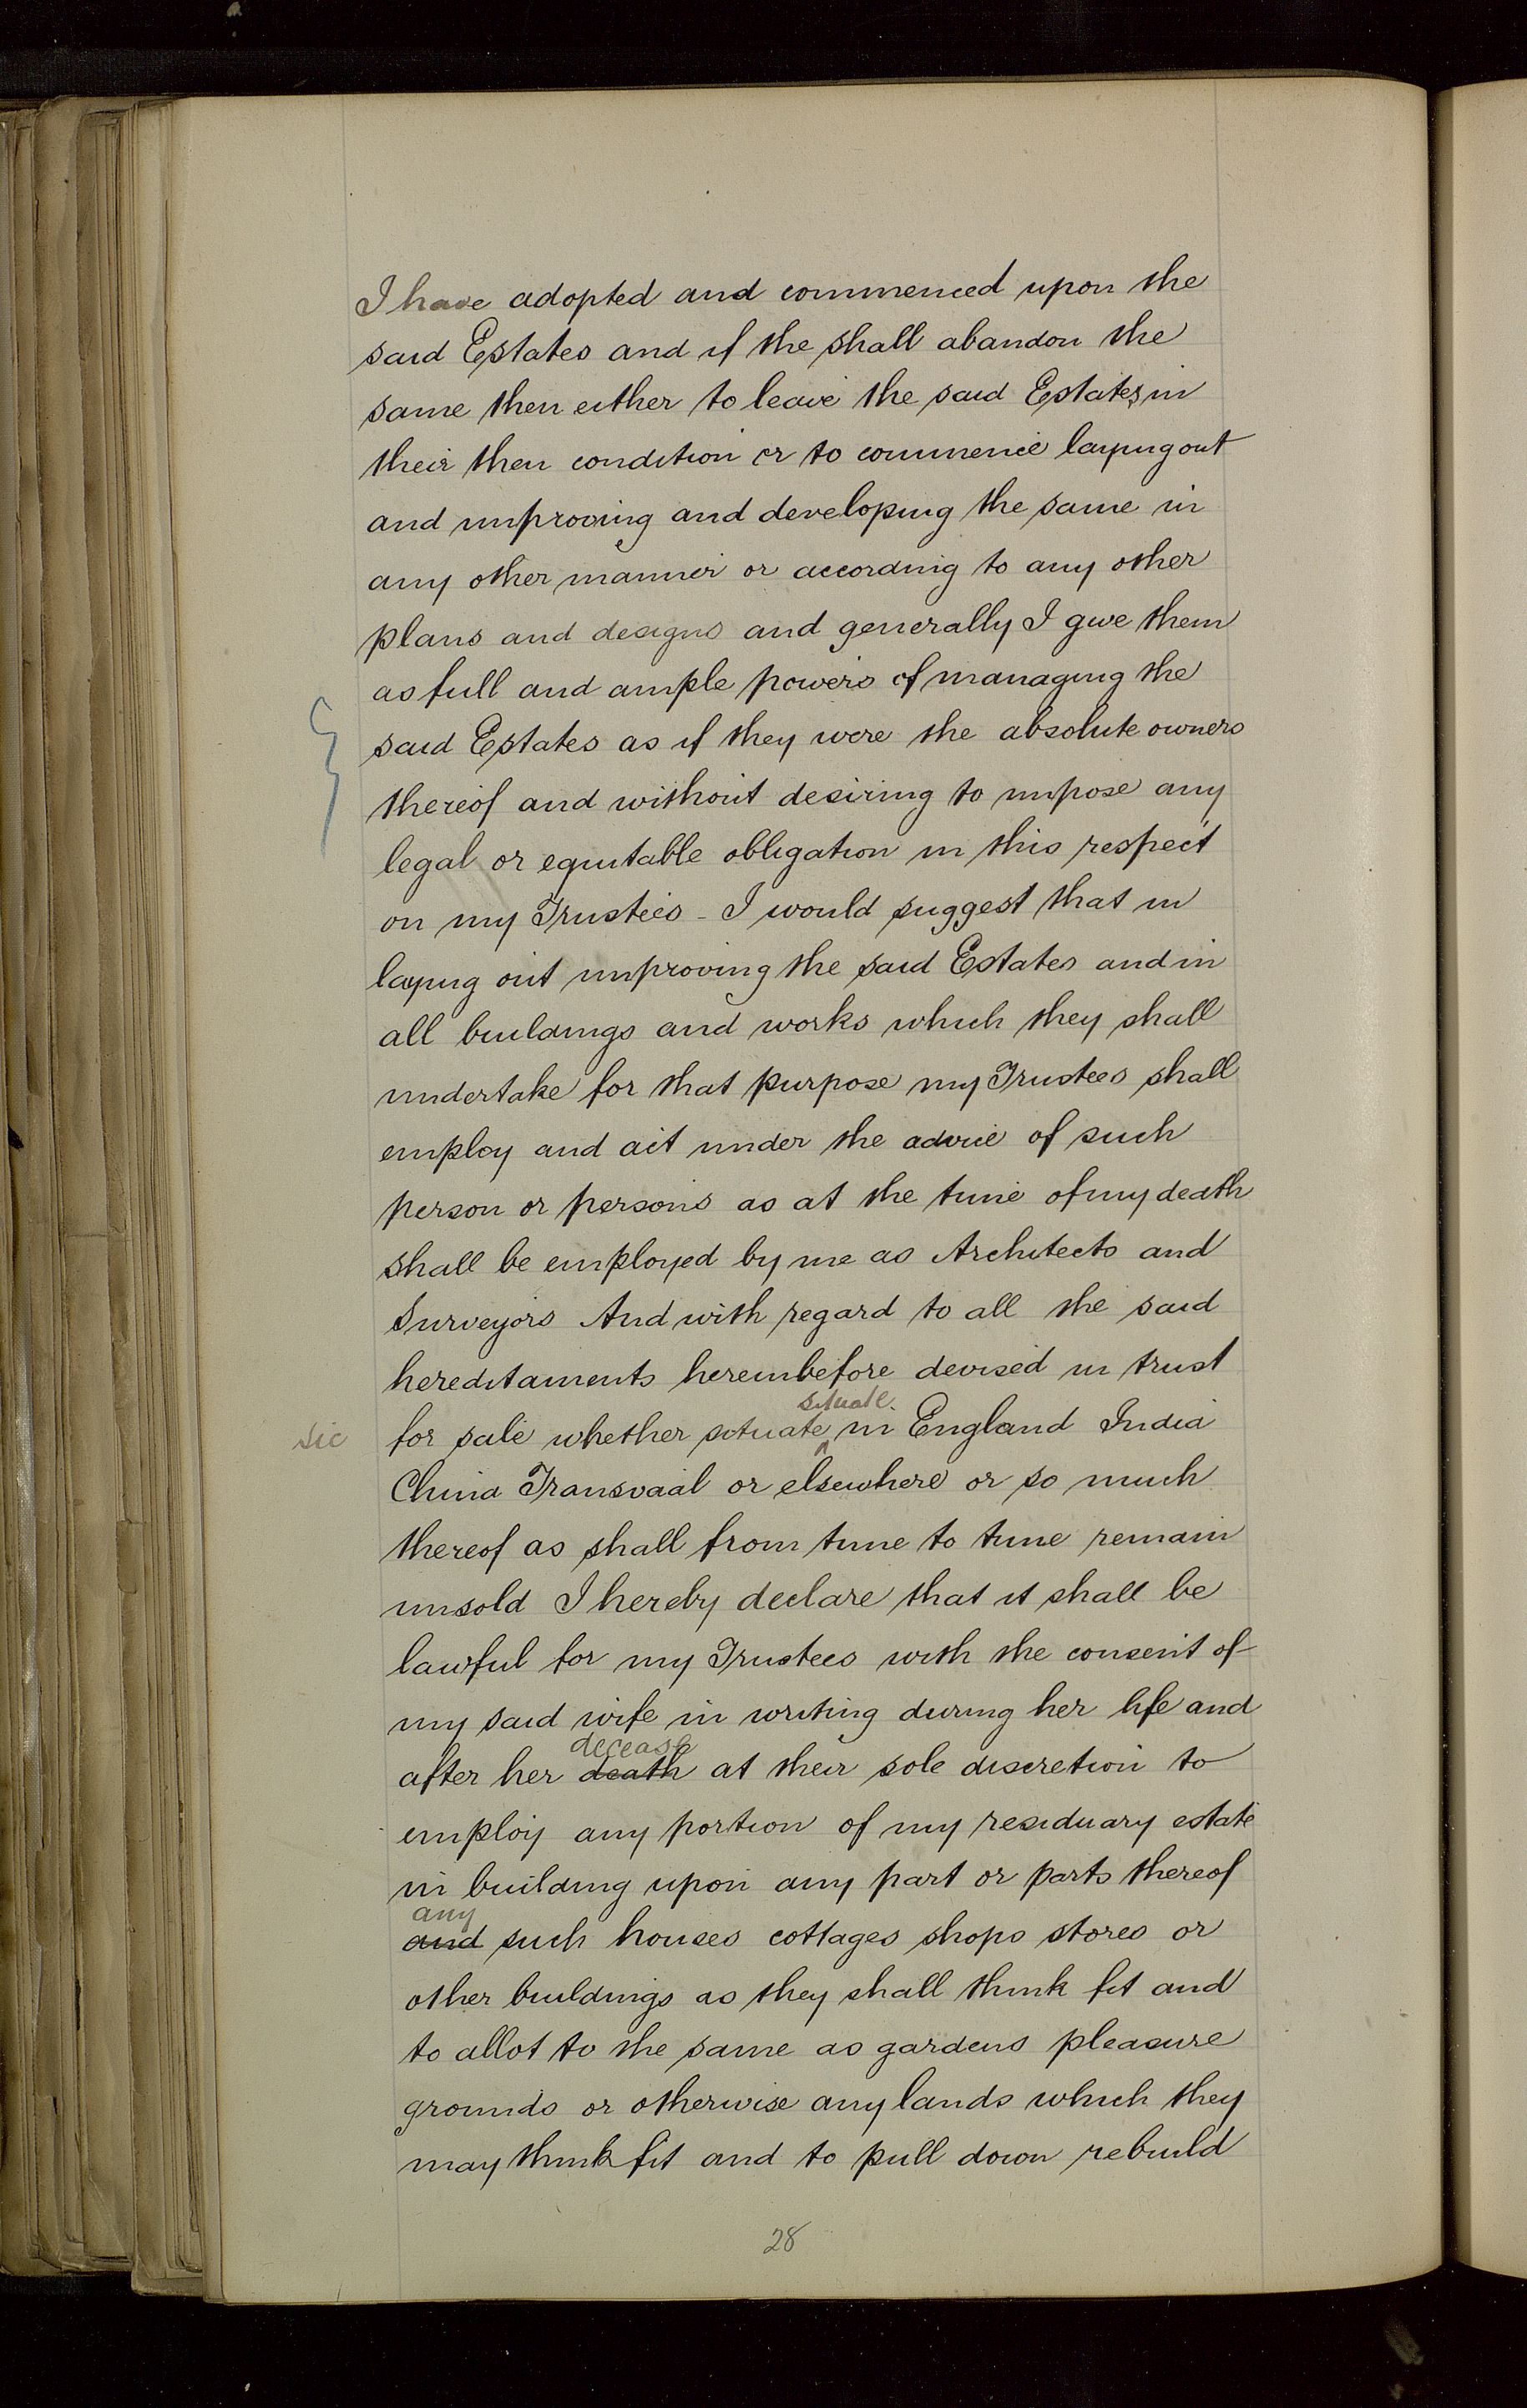 I have adopted and commenced upon the
said Estates and if the shall abandon the
same then either to leave the said Estates in
their then condition or to commence laying out
and improving and developing the same in
any other manner or according to any other
plans and designs and generally I give them
as full and ample powers of managing the
said Estates as if they were the absolute owners
thereof and without desiring to impose any
legal or equitable obligation in this respect
on my Trustees - I would suggest that in
laying out improving the said Estates and in
all buildings and works which they shall
undertake for that purpose my Trustees shall
employ and act under the advice of such
person or persons as at the time of my death
shall be employed by me as Architects and
Surveyors And with regard to all the said
hereditaments hereinbefore devised in trust
situate
sic for sale whether situate in England India
China Transvaal or elsewhere or so much
thereof as shall from time to time remain
unsold I hereby declare that it shall be
lawful for my Trustees with the consent of
my said wife in writing during her life and
decease
after her death at their sole discretion to
employ any portion of my residuary estate
in building upon any part or parts thereof
any
and such houses cottages shops stores or
other buildings as they shall think fit and
to allot to the same as gardens pleasure
grounds or otherwise any lands which they
may think fit and to pull down rebuild
28